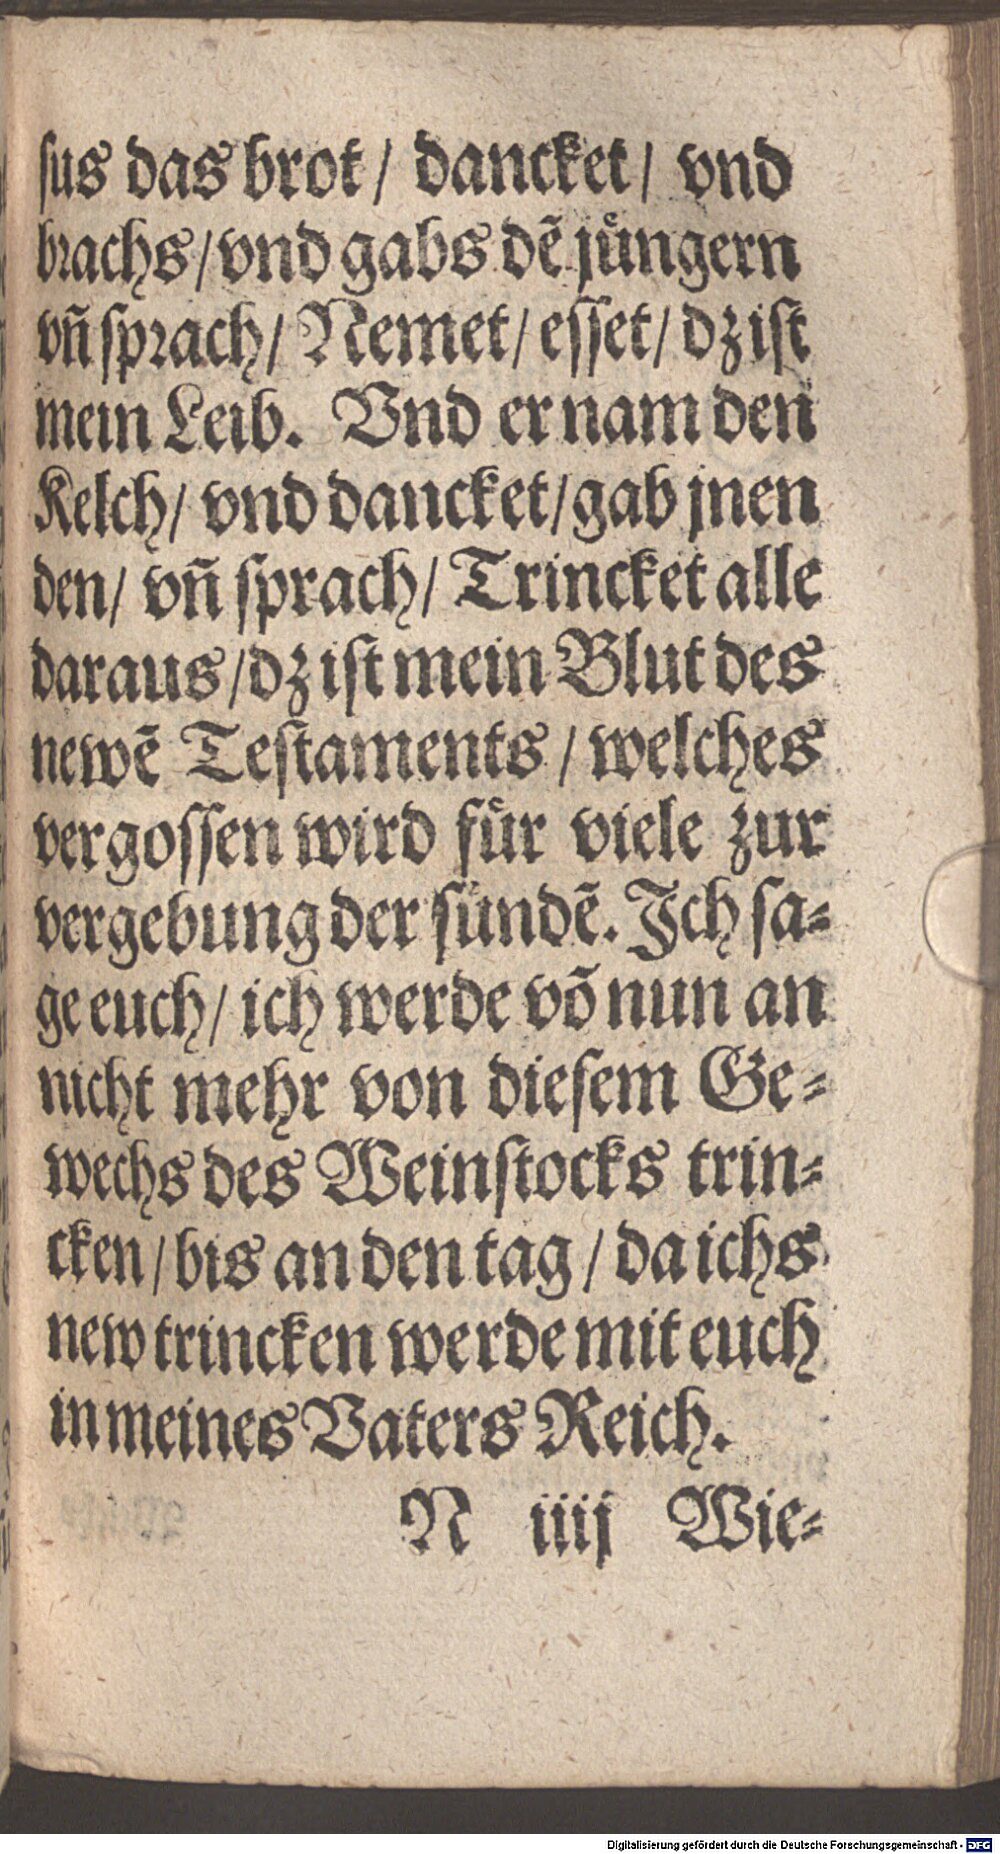 sus das brot / dancket / vnd
brachs / vnd gabs dẽ jüngern
vñ sprach / Nemet / esset / dz ist
mein Leib. Vnd er nam den
Kelch / vnd dancket / gab jnen
den / vñ sprach / Trincket alle
daraus / dz ist mein Blut des
newẽ Testaments / welches
vergossen wird für viele zur
vergebung der sündẽ. Ich sa-
ge euch / ich werde võ nun an
nicht mehr von diesem Ge-
wechs des Weinstocks trin-
cken / bis an den tag / da ichs
new trincken werde mit euch
in meines Vaters Reich.
N iiij Wie-
Digitalisierung gefördert durch die Deutsche Forschungsgemeinschaft - DFG